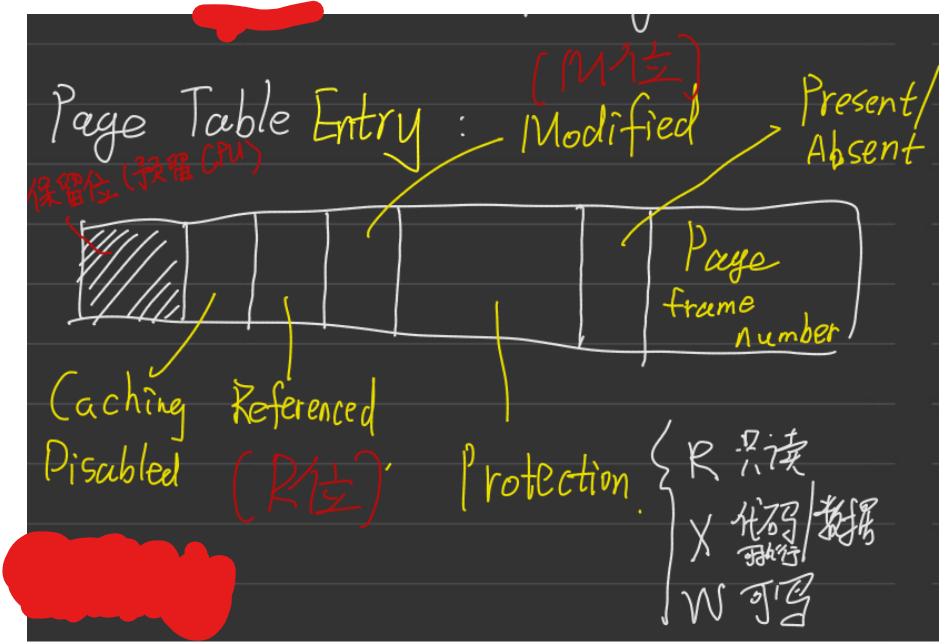 (M位)
Page Table Entry :
Modified
Present/
Absent
保留位(预留CPU)
Page
frame
number
Caching
Disabled
Referenced
(R位)
Protection
R 只读
X 代码/数据
可执行
W 可写